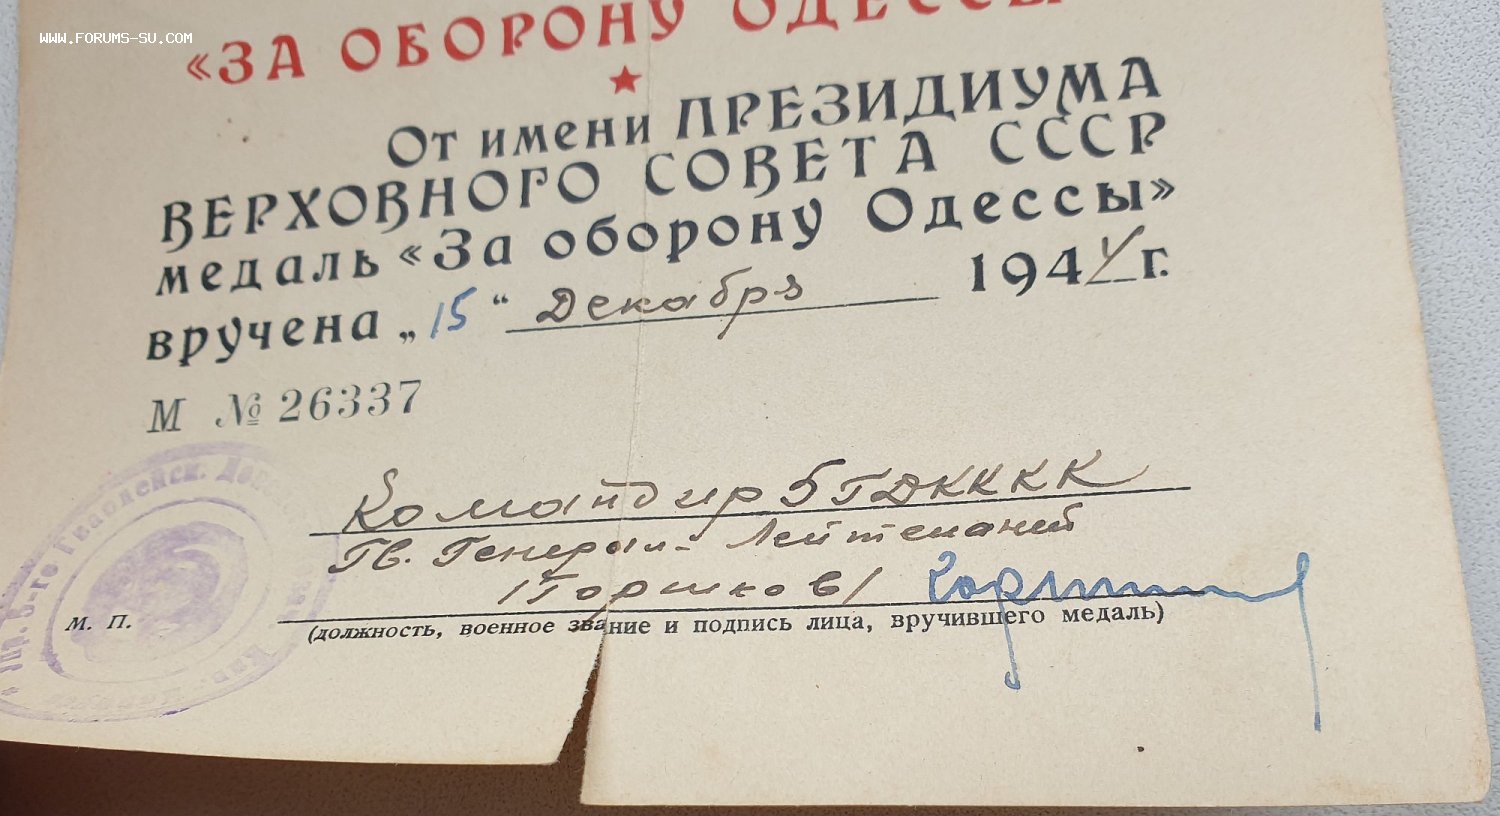 WWW.FORUMS-SU.COM
«ЗА ОБОРОНУ ОДЕССЫ
От имени ПРЕЗИДИУМА
ВЕРХОВНОГО СОВЕТА СССР
медаль «За оборону Одессы»
вручена „15“ Декабря 1944 г.
М № 26337
Командир 5 ГДКККК
Гв. Генерал-Лейтенант
/Горшков/
М. П.
(должность, военное звание и подпись лица, вручившего медаль)